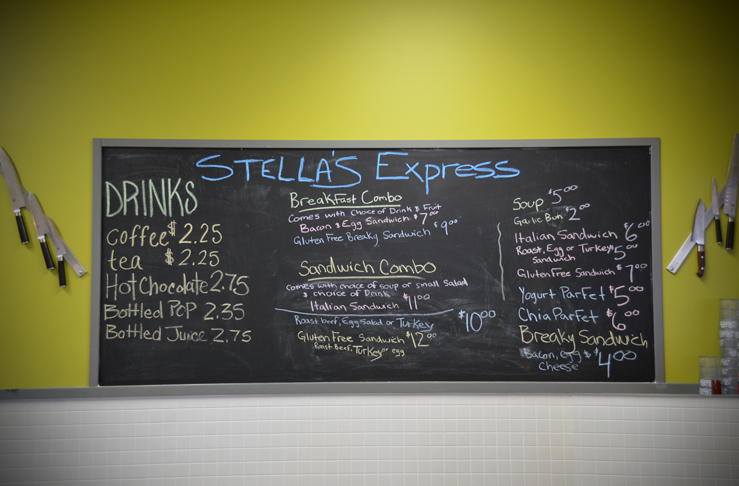 STELLA'S Express
DRINKS
Coffee $2.25
tea $2.25
Hot Chocolate 2.75
Bottled Pop 2.35
Bottled Juice 2.75
Breakfast Combo
Comes with Choice of Drink & Fruit
Bacon & Egg Sandwich $7.00
Gluten Free Breaky Sandwich $9.00
Sandwich Combo
Comes with choice of soup or small Salad
& choice of Drink
Italian Sandwich $11.00
Roast beef, Egg Salad or Turkey $10.00
Gluten Free Sandwich $12.00
Roast Beef, Turkey or egg
Soup $5.00
Garlic Bun $2.00
Italian Sandwich $6.00
Roast, Egg or Turkey $5.00
Sandwich
Gluten Free Sandwich $7.00
Yogurt Parfet $5.00
Chia Parfet $6.00
Breaky Sandwich
Bacon, egg & $4.00
Cheese